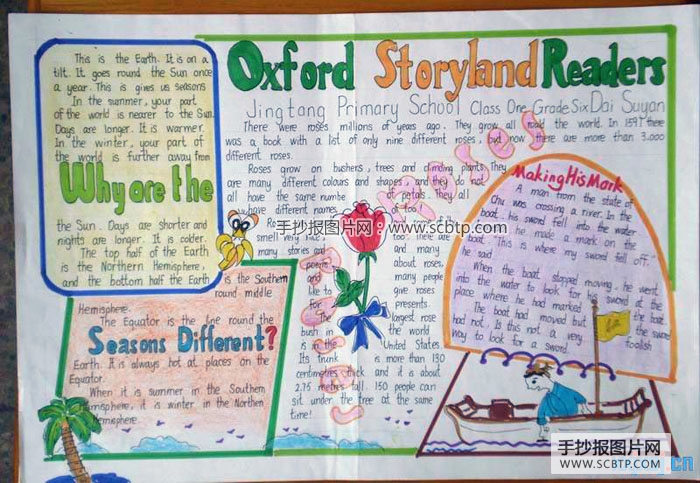 Oxford Storyland Readers
Jingtang Primary School Class One Grade Six Dai Suyan
This is the Earth. It is on a
tilt. It goes round the Sun once
a year. This is gives us seasons
In the summer, your part
of the world is nearer to the Sun.
Days are longer. It is warmer.
In the winter, your part of
the world is further away from
Why are the
the Sun. Days are shorter and
nights are longer. It is colder.
The top half of the Earth
is the Northern Hemisphere,
and the bottom half the Earth
is the Southern
round middle
Hemisphere.
The Equator is the line round the
Seasons Different?
Earth. It is always hot at places on the
Equator.
When it is summer in the Southern
Hemisphere, it is winter in the Northern
Hemisphere.
There were roses millions of years ago. They grow all round the world. In 1597 there
was a book with a list of only nine different roses, but now there are more than 3,000
different roses.
Roses grow on bushers, trees and climbing plants. They
are many different colours and shapes, and they do not
all have the same number of petals. They all
have different names, too.
smell very nice,
too. There are
many stories and
and many
people
about roses.
and
many people
like to
give roses
for
presents.
The
largest rose
bush in
the world
is the
United States
Its trunk
is more than 130
centimetres thick and it is about
2.75 metres tall. 150 people can
sit under the tree at the same
time!
Making His Mark
A man from the state of
Chu was crossing a river. In the
boat, his sword fell into the water
he made a mark on the
boat. "This is where my sword fell off,"
he said
When the boat stopped moving, he went
into the water to look for his sword at the
place where he had marked the boat.
The boat had moved but the sword
had not. Is this not a very foolish
way to look for a sword.
手抄报图片网
www.scbtp.com
手抄报图片网
www.scbtp.com
手抄报图片网
www.scbtp.com
手抄报图片网
WWW.SCBTP.COM